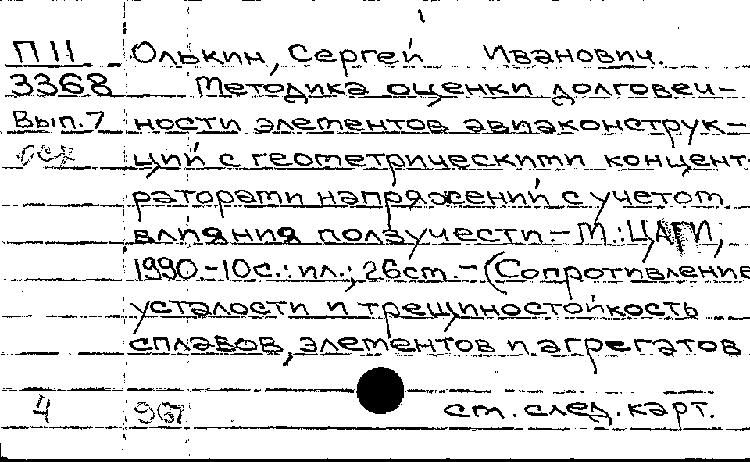 1
П 11 Олькин, Сергей Иванович.
3368 Методика оценки долговеч-
Вып.7 ности элементов авиаконструк-
ций с геометрическими концент-
раторами напряжений с учетом
влияния ползучести.- М.: ЦАГИ,
1990.-10с.: ил.; 26см.- (Сопротивление
усталости и трещиностойкость
сплавов, элементов и агрегатов
4 967 см. след. карт.